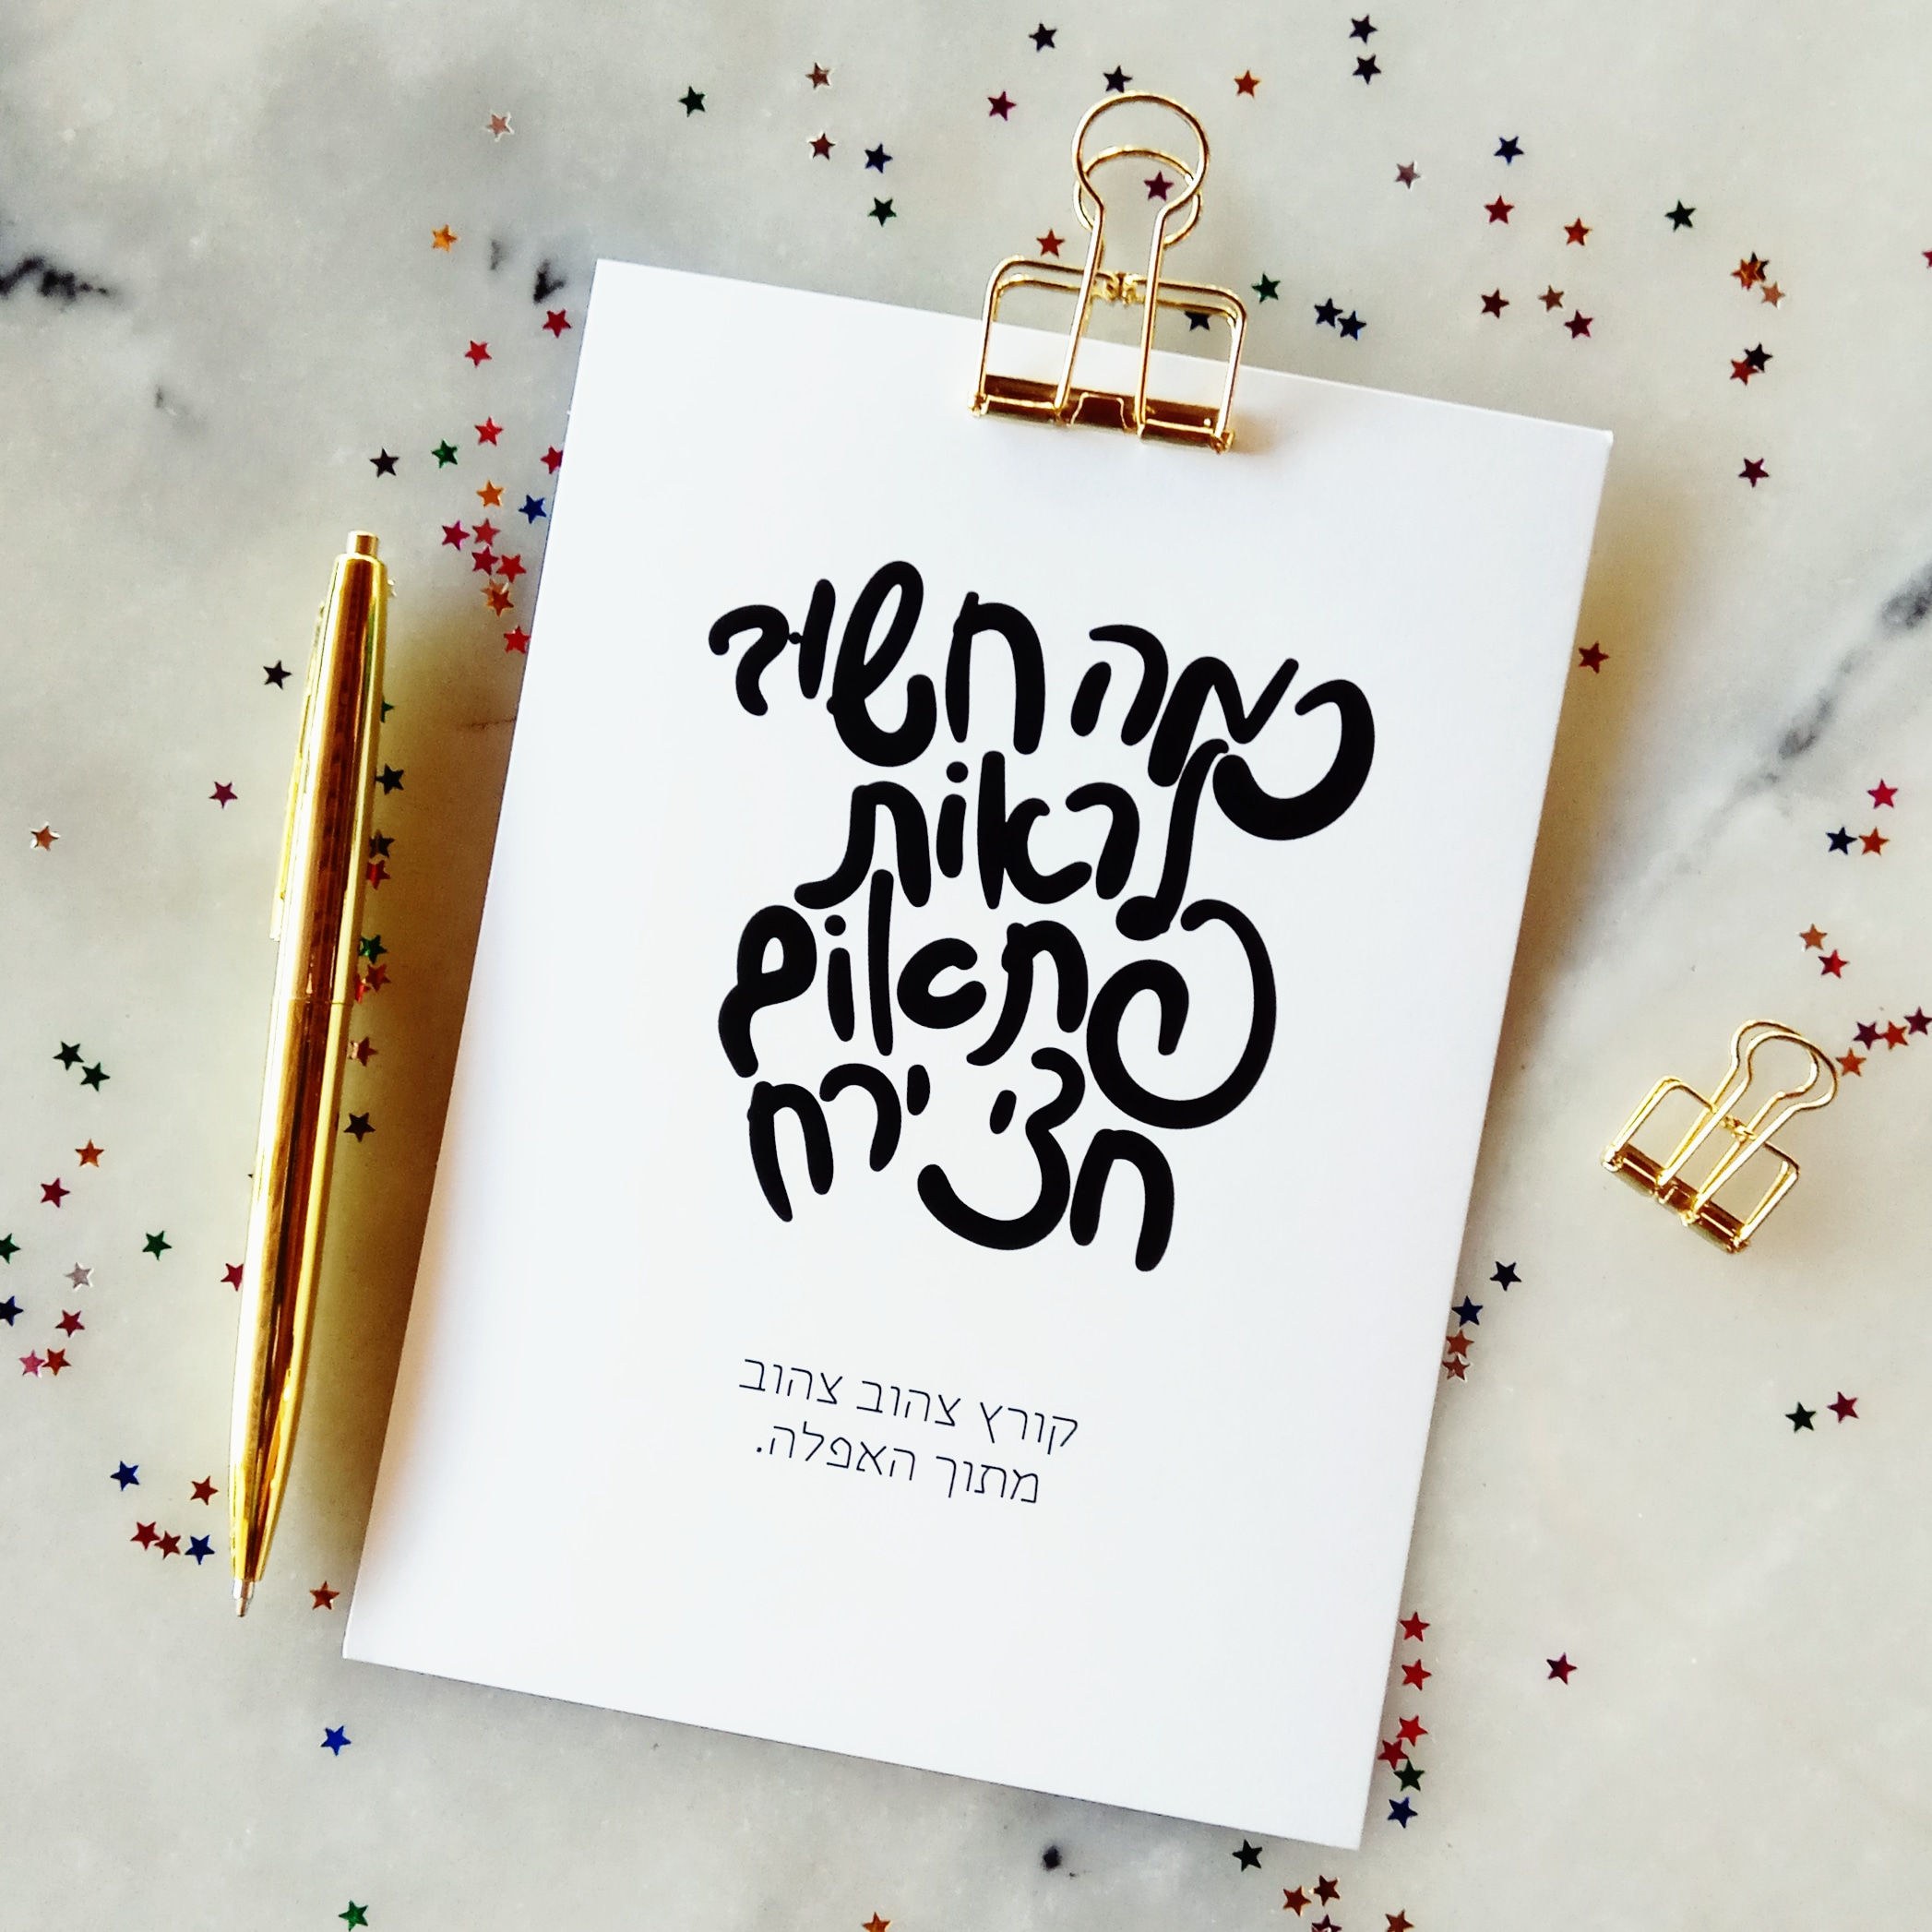 כמה חשוב
לראות
פתאום
חצי ירח
קורץ צהוב צהוב
מתוך האפלה.